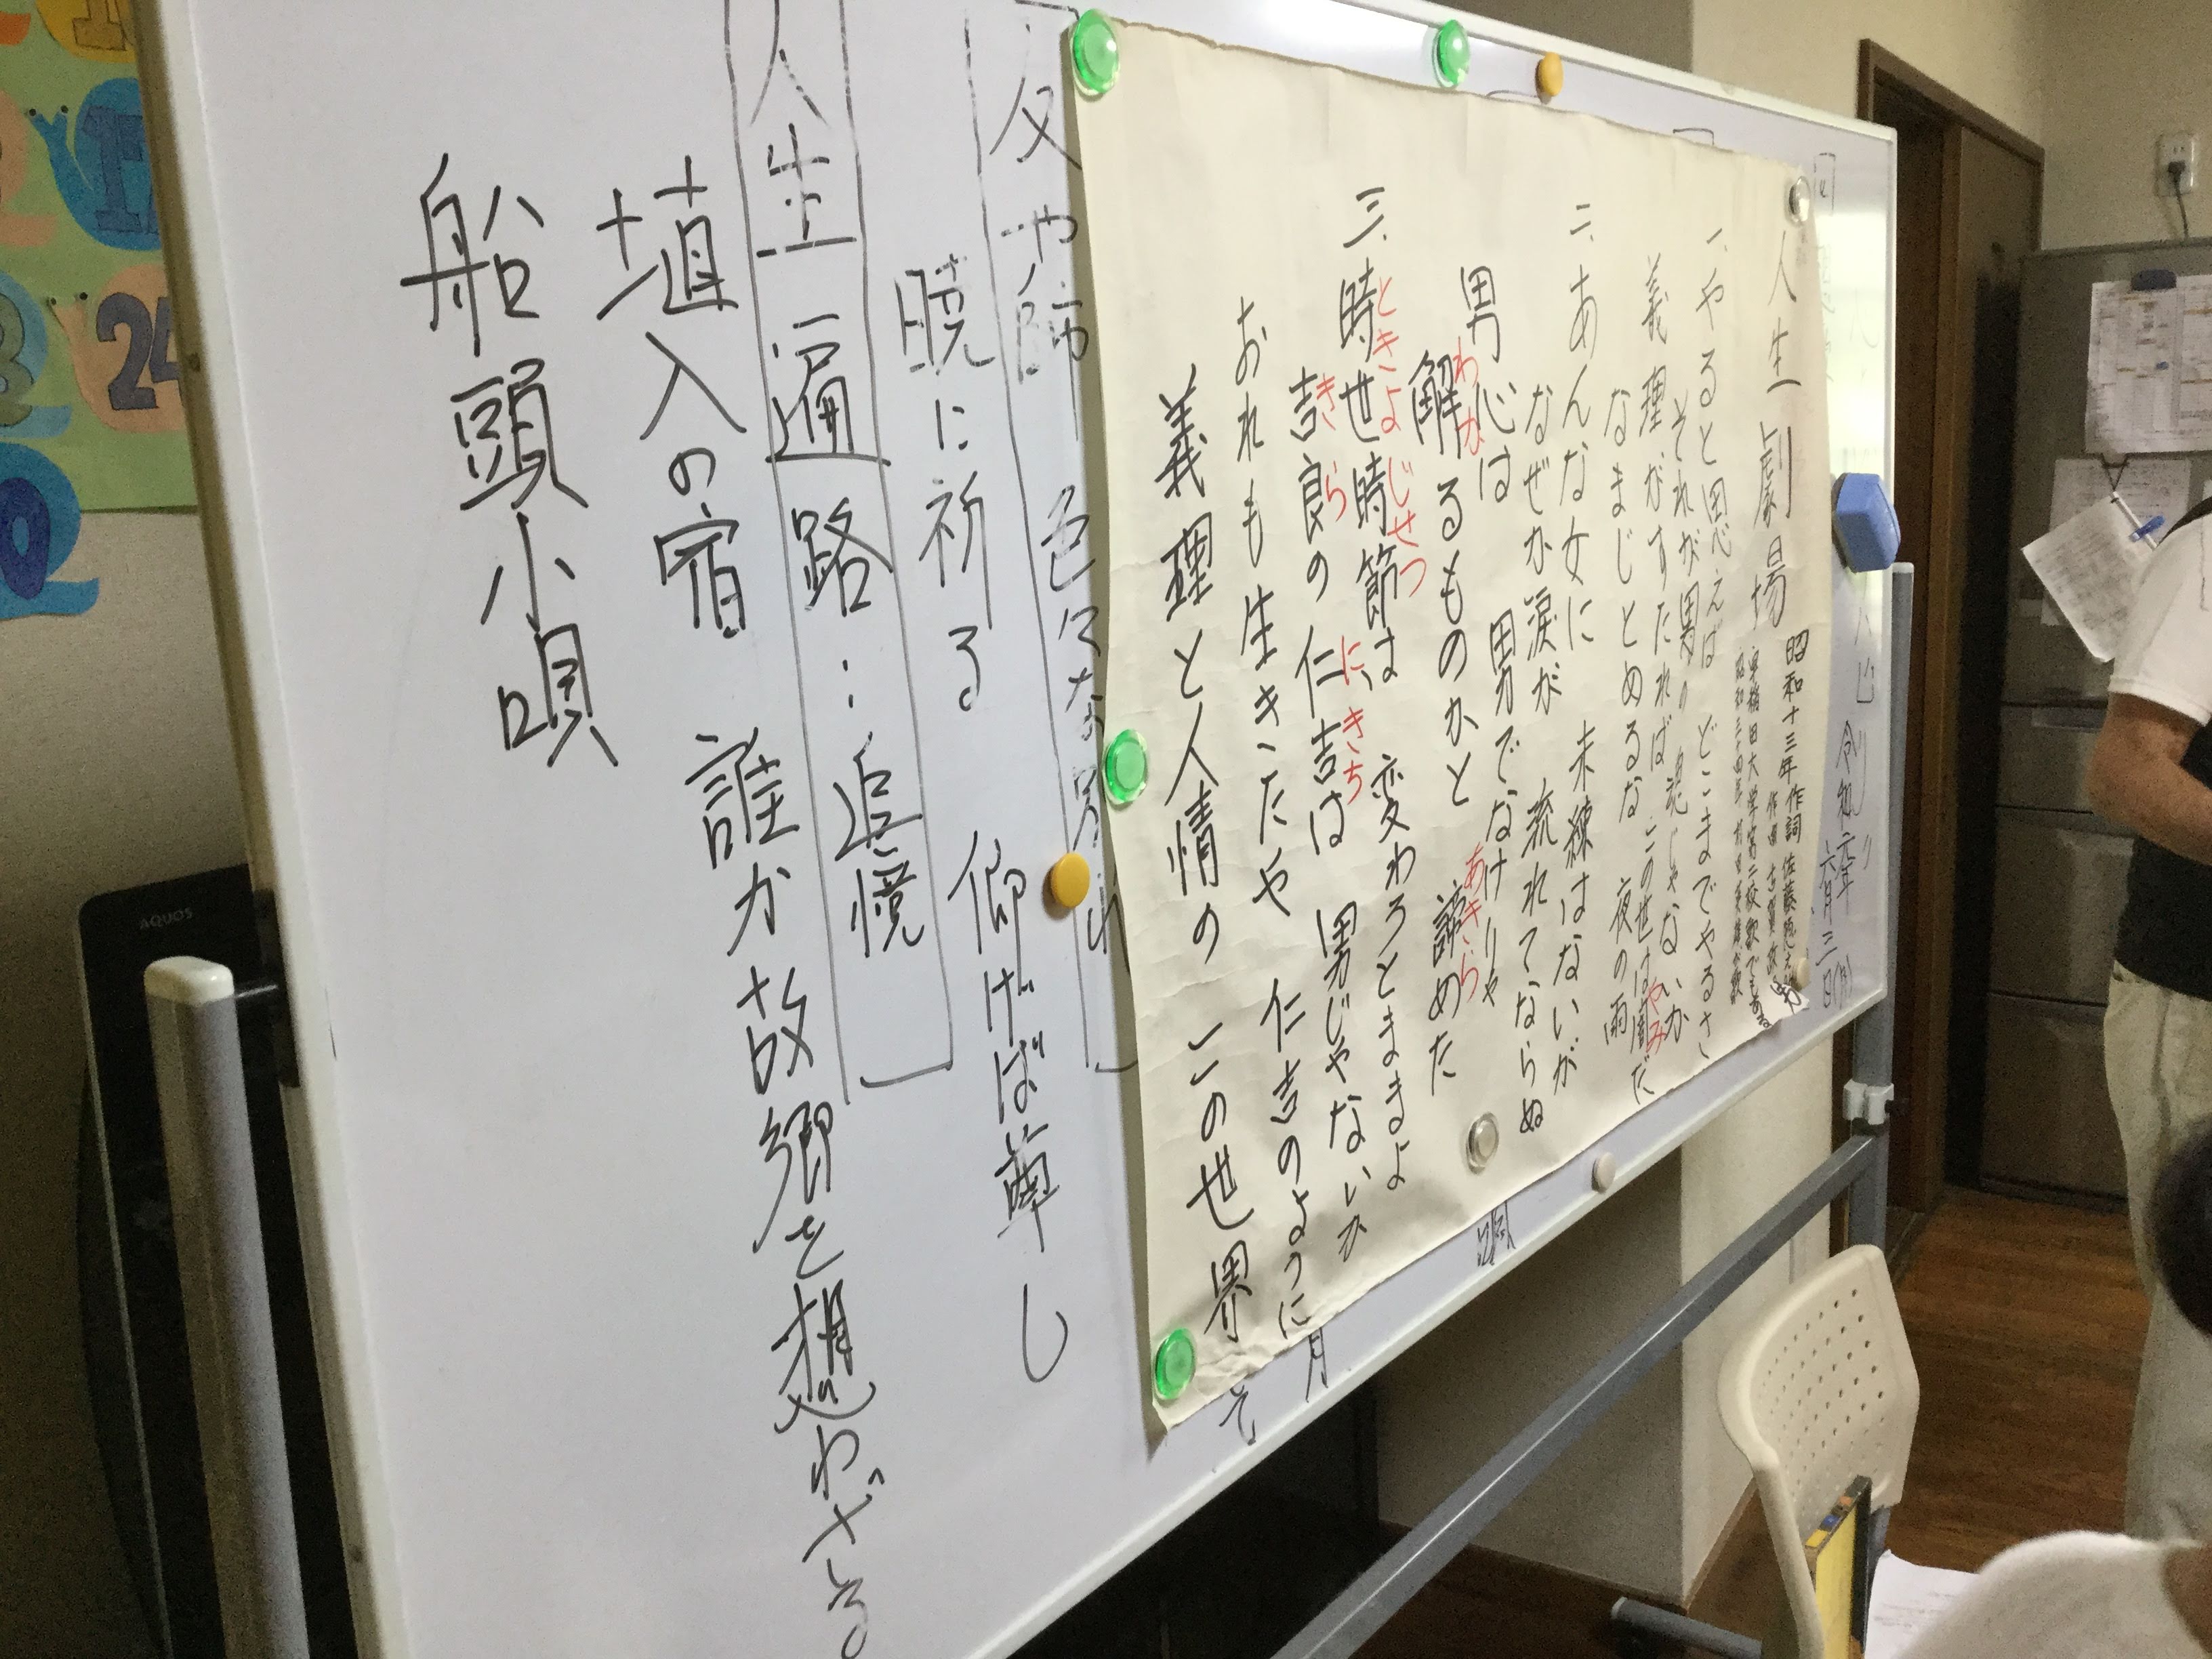 令和元年
六月三日(月)
人生劇場
昭和十三年 作詞 佐藤惣之助
作曲 古賀政男
早稲田大学第二校歌でもある
一、やると思えば どこまでやるさ
それが男の 魂じゃないか
義理がすたれば この世は闇だ
やみ
なまじとめるな 夜の雨
二、あんな女に 未練はないが
なぜか涙が 流れてならぬ
男心は 男でなけりゃ
わか
あきら
解るものかと 諦めた
ときよ じせつ
三、時世時節は 変わろとままよ
きら にきち
吉良の仁吉は 男じゃないか
おれも生きたや 仁吉のように
義理と人情の この世界
色々な別れ
暁に祈る 仰げば尊し
人生遍路…追憶
埴入の宿 誰か故郷を想わざる
船頭小唄
AQUOS
17
24